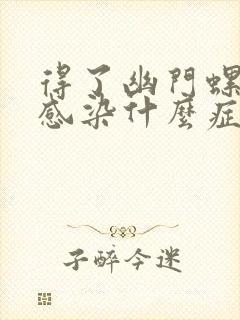 得了幽門螺
感染什麼症
子醉今迷